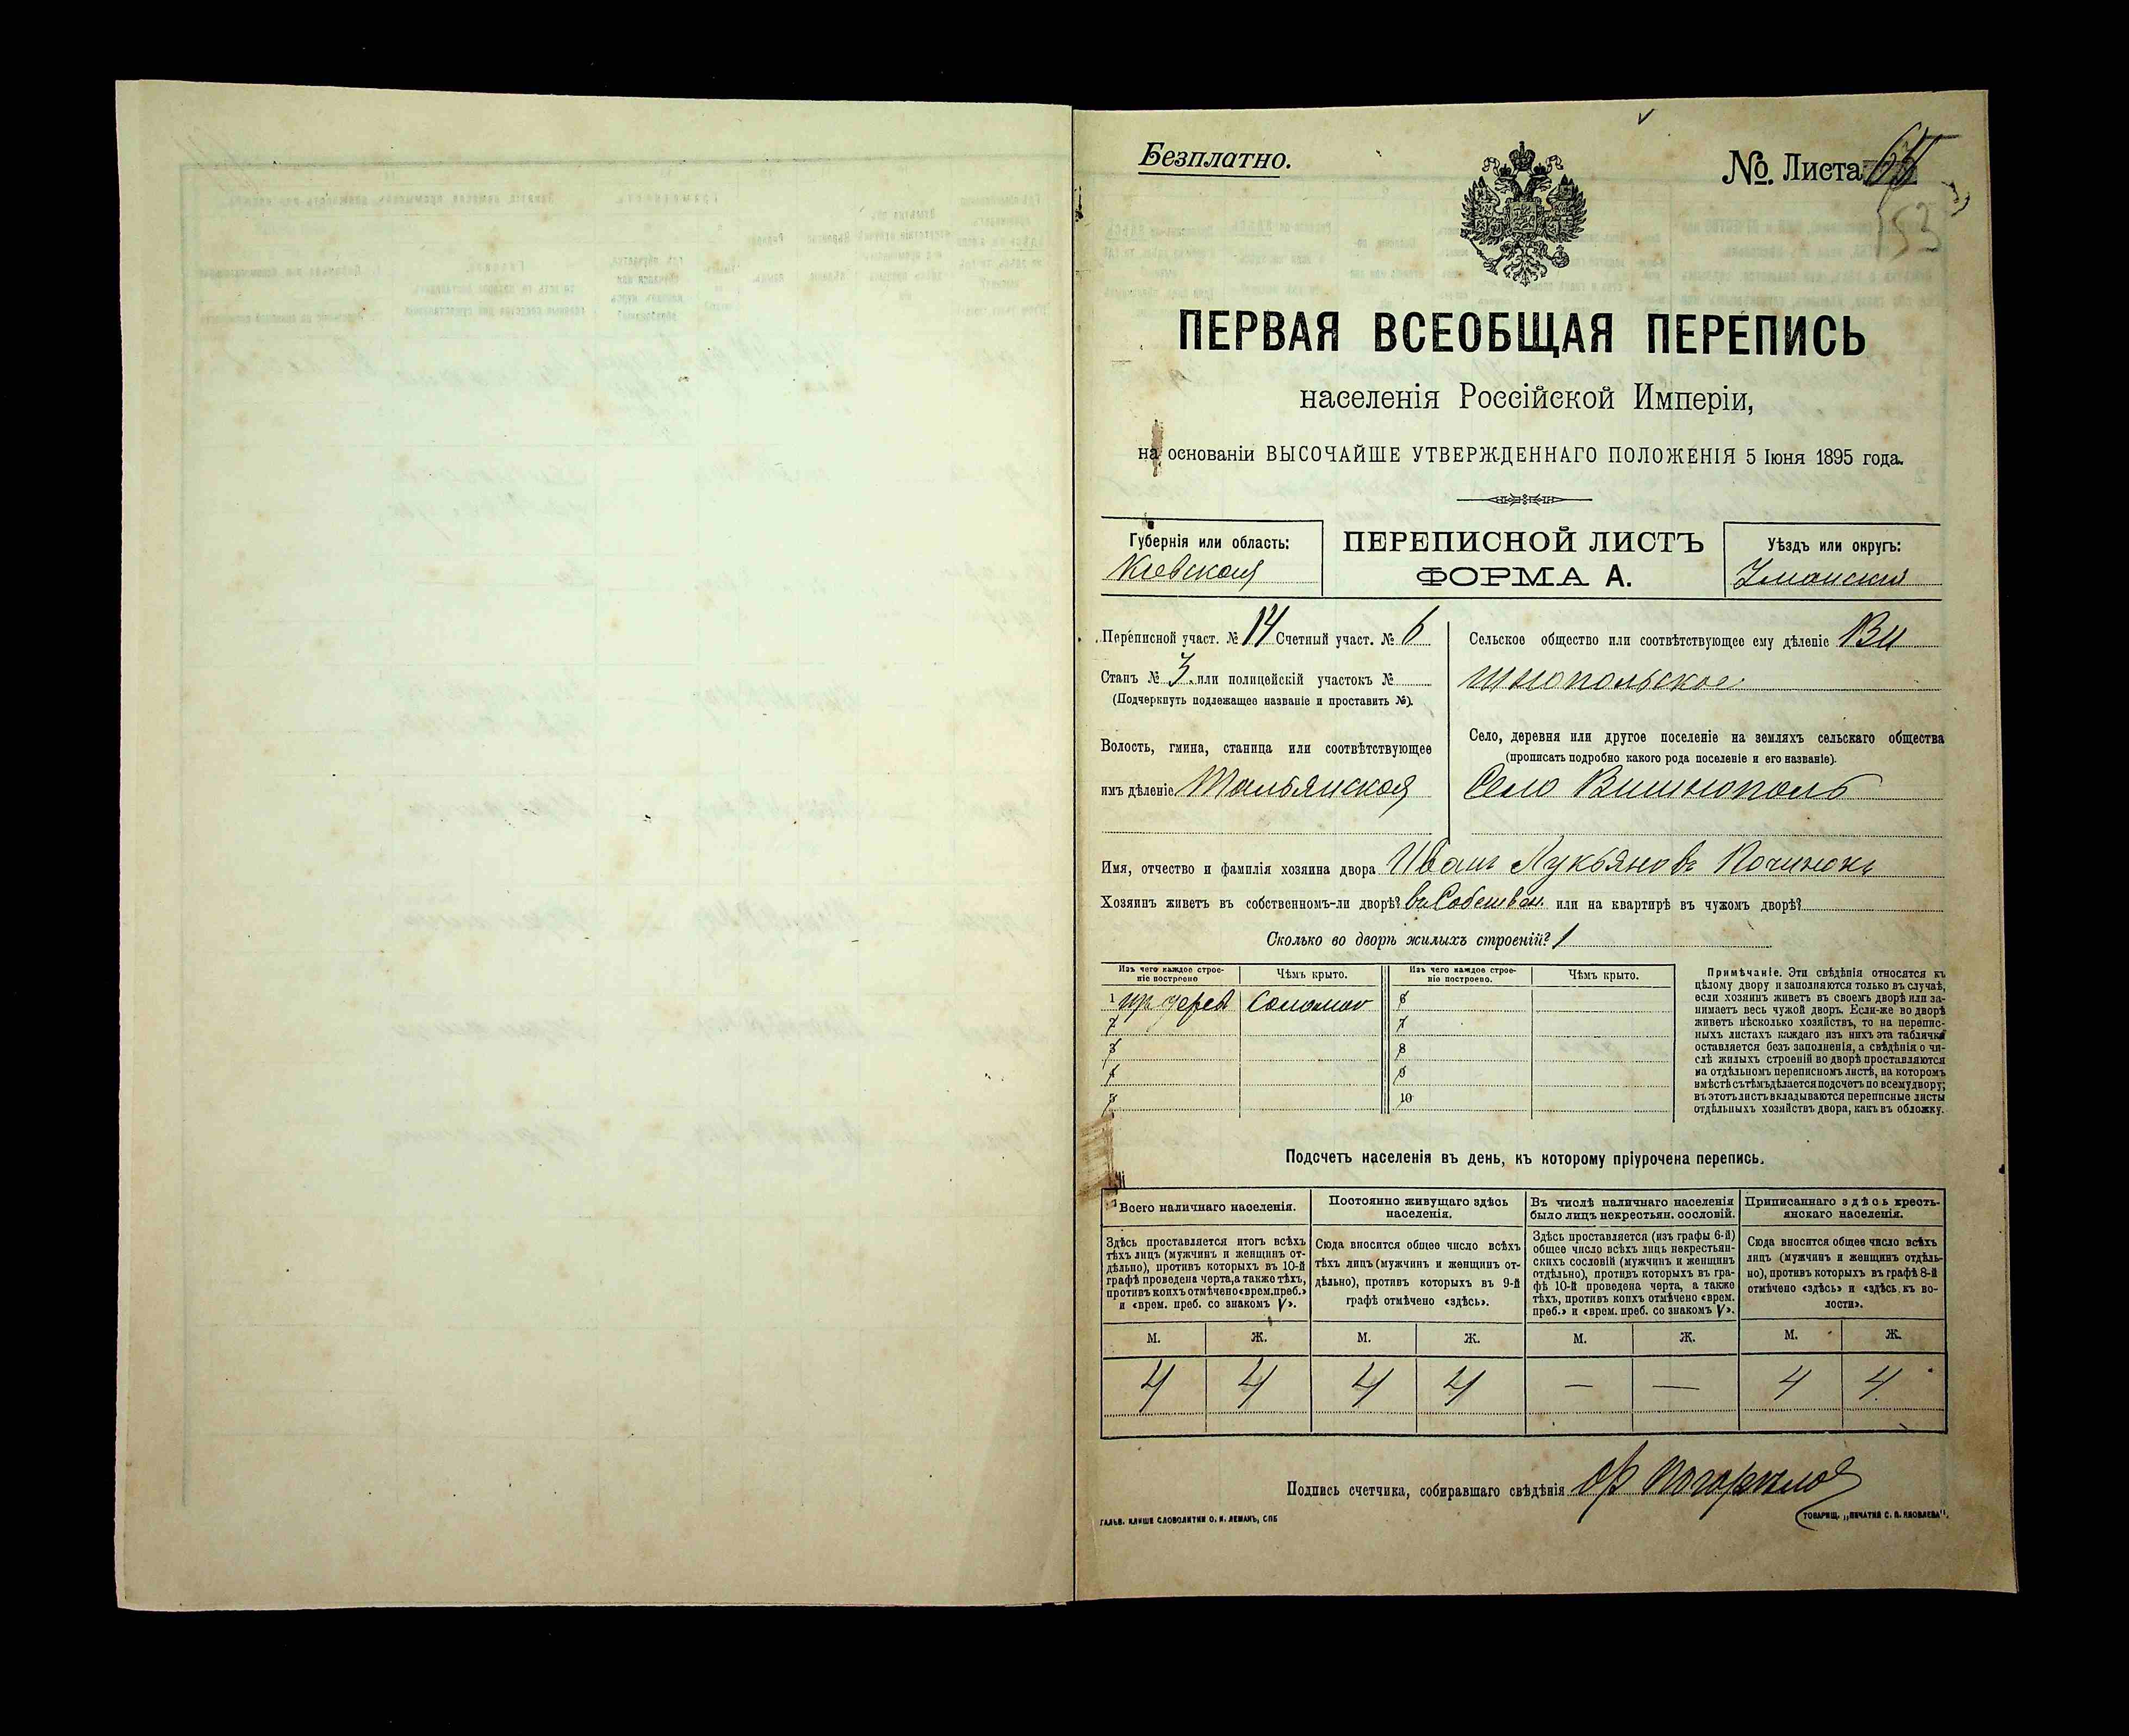 Безплатно.
№ Листа
53
ПЕРВАЯ ВСЕОБЩАЯ ПЕРЕПИСЬ
населенія Россійской Имперіи,
на основаніи ВЫСОЧАЙШЕ УТВЕРЖДЕННАГО ПОЛОЖЕНІЯ 5 Іюня 1895 года.
Губернія или область:
Кіевская
ПЕРЕПИСНОЙ ЛИСТЪ
ФОРМА А.
Уѣздъ или округъ:
Уманскій
Переписной участ. № 14 Счетный участ. № 6
Станъ № 3. или полицейскій участокъ №
(Подчеркнуть подлежащее названіе и проставить №).
Волость, гмина, станица или соотвѣтствующее
имъ дѣленіе Тальянская
Сельское общество или соотвѣтствующее ему дѣленіе Ви
шнопольское
Село, деревня или другое поселеніе на земляхъ сельскаго общества
(прописать подробно какого рода поселеніе и его названіе).
Село Вишнополь
Имя, отчество и фамилія хозяина двора Иванъ Лукьяновъ Починокъ
Хозяинъ живетъ въ собственномъ-ли дворѣ? въ Собствен. или на квартирѣ въ чужомъ дворѣ?
Сколько во дворѣ жилыхъ строеній? 1
Изъ чего каждое строе-
ніе построено
Чѣмъ крыто.
Изъ чего каждое строе-
ніе построено.
Чѣмъ крыто.
1 дерев Соломою 6
2 7
3 8
4 9
5 10
Примѣчаніе. Эти свѣдѣнія относятся къ
цѣлому двору и заполняются только въ случаѣ,
если хозяинъ живетъ въ своемъ дворѣ или за-
нимаетъ весь чужой дворъ. Если-же во дворѣ
живетъ нѣсколько хозяйствъ, то на перепис-
ныхъ листахъ каждаго изъ нихъ эта табличка
оставляется безъ заполненія, а свѣдѣнія о чи-
слѣ жилыхъ строеній во дворѣ проставляются
на отдѣльномъ переписномъ листѣ, на которомъ
вмѣстѣ съ тѣмъ дѣлается подсчетъ по всему двору;
въ этотъ листъ вкладываются переписные листы
отдѣльныхъ хозяйствъ двора, какъ въ обложку.
Подсчетъ населенія въ день, къ которому пріурочена перепись.
Всего наличнаго населенія.
Здѣсь проставляется итогъ всѣхъ
тѣхъ лицъ (мужчинъ и женщинъ от-
дѣльно), противъ которыхъ въ 10-й
графѣ проведена черта, а также тѣхъ,
противъ коихъ отмѣчено «врем. преб.»
и «врем. преб. со знакомъ V».
Постоянно живущаго здѣсь
населенія.
Сюда вносится общее число всѣхъ
тѣхъ лицъ (мужчинъ и женщинъ от-
дѣльно), противъ которыхъ въ 9-й
графѣ отмѣчено «здѣсь».
Въ числѣ наличнаго населенія
было лицъ некрестьян. сословій.
Здѣсь проставляется (изъ графы 6-й)
общее число всѣхъ лицъ некрестьян-
скихъ сословій (мужчинъ и женщинъ
отдѣльно), противъ которыхъ въ гра-
фѣ 10-й проведена черта, а также
тѣхъ, противъ коихъ отмѣчено «врем.
преб.» и «врем. преб. со знакомъ V».
Приписаннаго здѣсь кресть-
янскаго населенія.
Сюда вносится общее число всѣхъ
лицъ (мужчинъ и женщинъ отдѣль-
но), противъ которыхъ въ графѣ 8-й
отмѣчено «здѣсь» и «здѣсь къ во-
лости».
М. Ж. М. Ж. М. Ж. М. Ж.
4 4 4 4 — — 4 4
Подпись счетчика, собиравшаго свѣдѣнія
ГАЛЬВ. КЛИШЕ СЛОВОЛИТНИ О. И. ЛЕМАНЪ, СПБ
ТОВАРИЩ. „ПЕЧАТНЯ С. П. ЯКОВЛЕВА“.